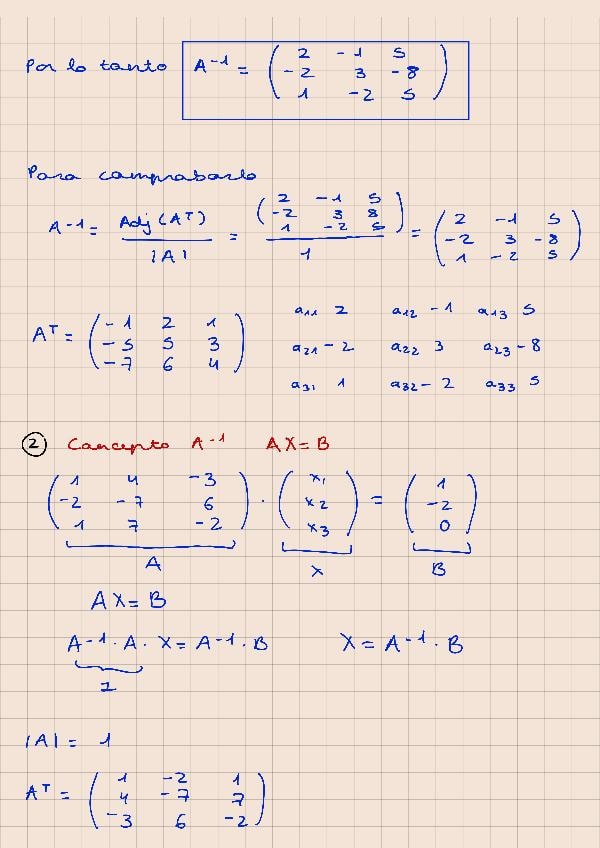 Por lo tanto A⁻¹ = ( 2 -1 5
-2 3 -8
1 -2 5 )
Para comprobarlo
A⁻¹ = Adj(Aᵀ) / |A| = ( 2 -1 5
-2 3 8
1 -2 5 ) / 1 = ( 2 -1 5
-2 3 -8
1 -2 5 )
Aᵀ = ( -1 2 1
-5 5 3
-7 6 4 )
a₁₁ 2 a₁₂ -1 a₁₃ 5
a₂₁ -2 a₂₂ 3 a₂₃ -8
a₃₁ 1 a₃₂ -2 a₃₃ 5
② Concepto A⁻¹ AX=B
( 1 4 -3
-2 -7 6
1 7 -2 ) · ( x₁
x₂
x₃ ) = ( 1
-2
0 )
A X B
AX=B
A⁻¹·A·X=A⁻¹·B X=A⁻¹·B
I
|A| = 1
Aᵀ = ( 1 -2 1
4 -7 7
-3 6 -2 )